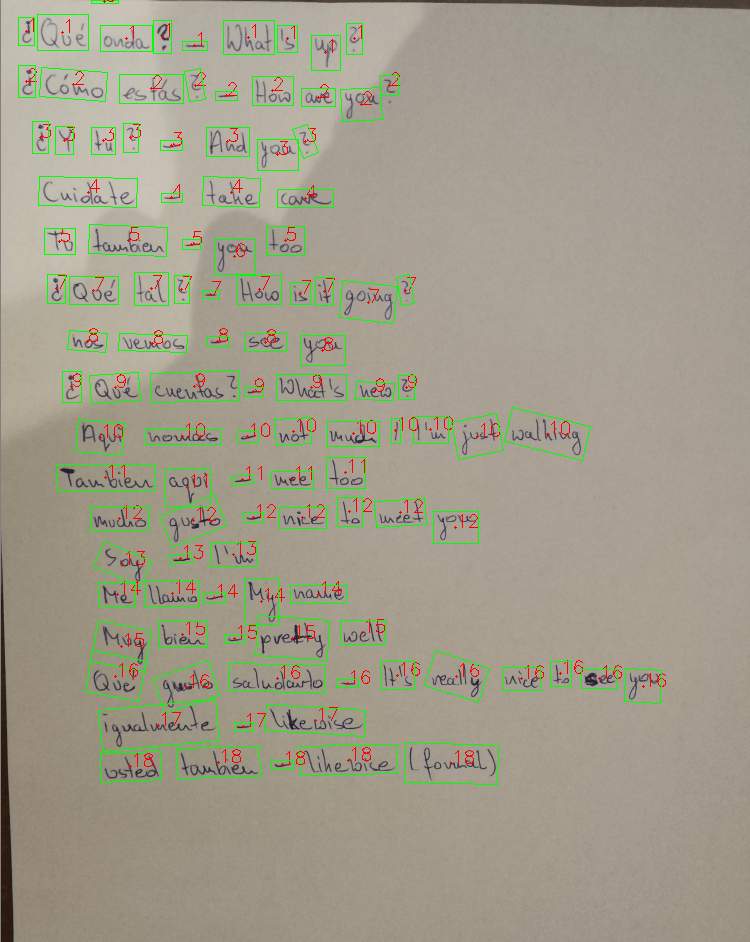 ¿Qué onda? - What's up?
¿Cómo estás? - How are you?
¿Y tu? - And you?
Cuidate - take care
Tu tambien - you too
¿Qué tal? - How is it going?
nos vemos - see you
¿Qué cuentas? - What's new?
Aqui nomas - not much, I'm just walking
Tambien aqui - mee too
mucho gusto - nice to meet you
Soy - I'm
Me llamo - My name
Muy bien - pretty well
Que gusto saludarlo - It's really nice to see you
igualmente - likewise
usted tambien - likewise (formal)